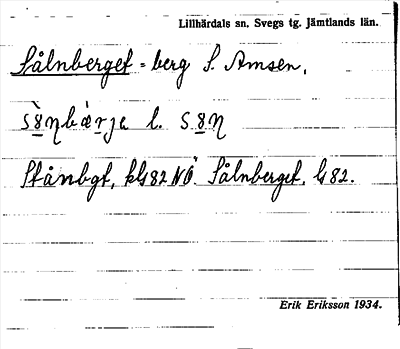 Lillhärdals sn. Svegs tg. Jämtlands län.
Sålnberget = berg S. Amsen,
l.
Stånbgt, kG82NÖ. Sålnberget, G82.
Erik Eriksson 1934.